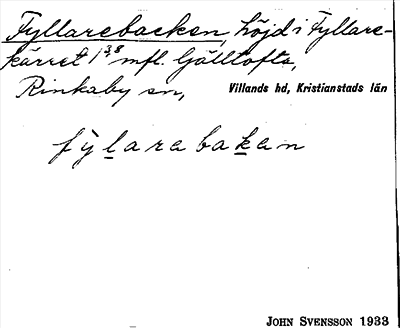 Fyllarebacken, höjd i Fyllare-
kärret 1³,⁸ mfl. Gälltofta,
Rinkaby sn, Villands hd, Kristianstads län
fylarebakan
JOHN SVENSSON 1933